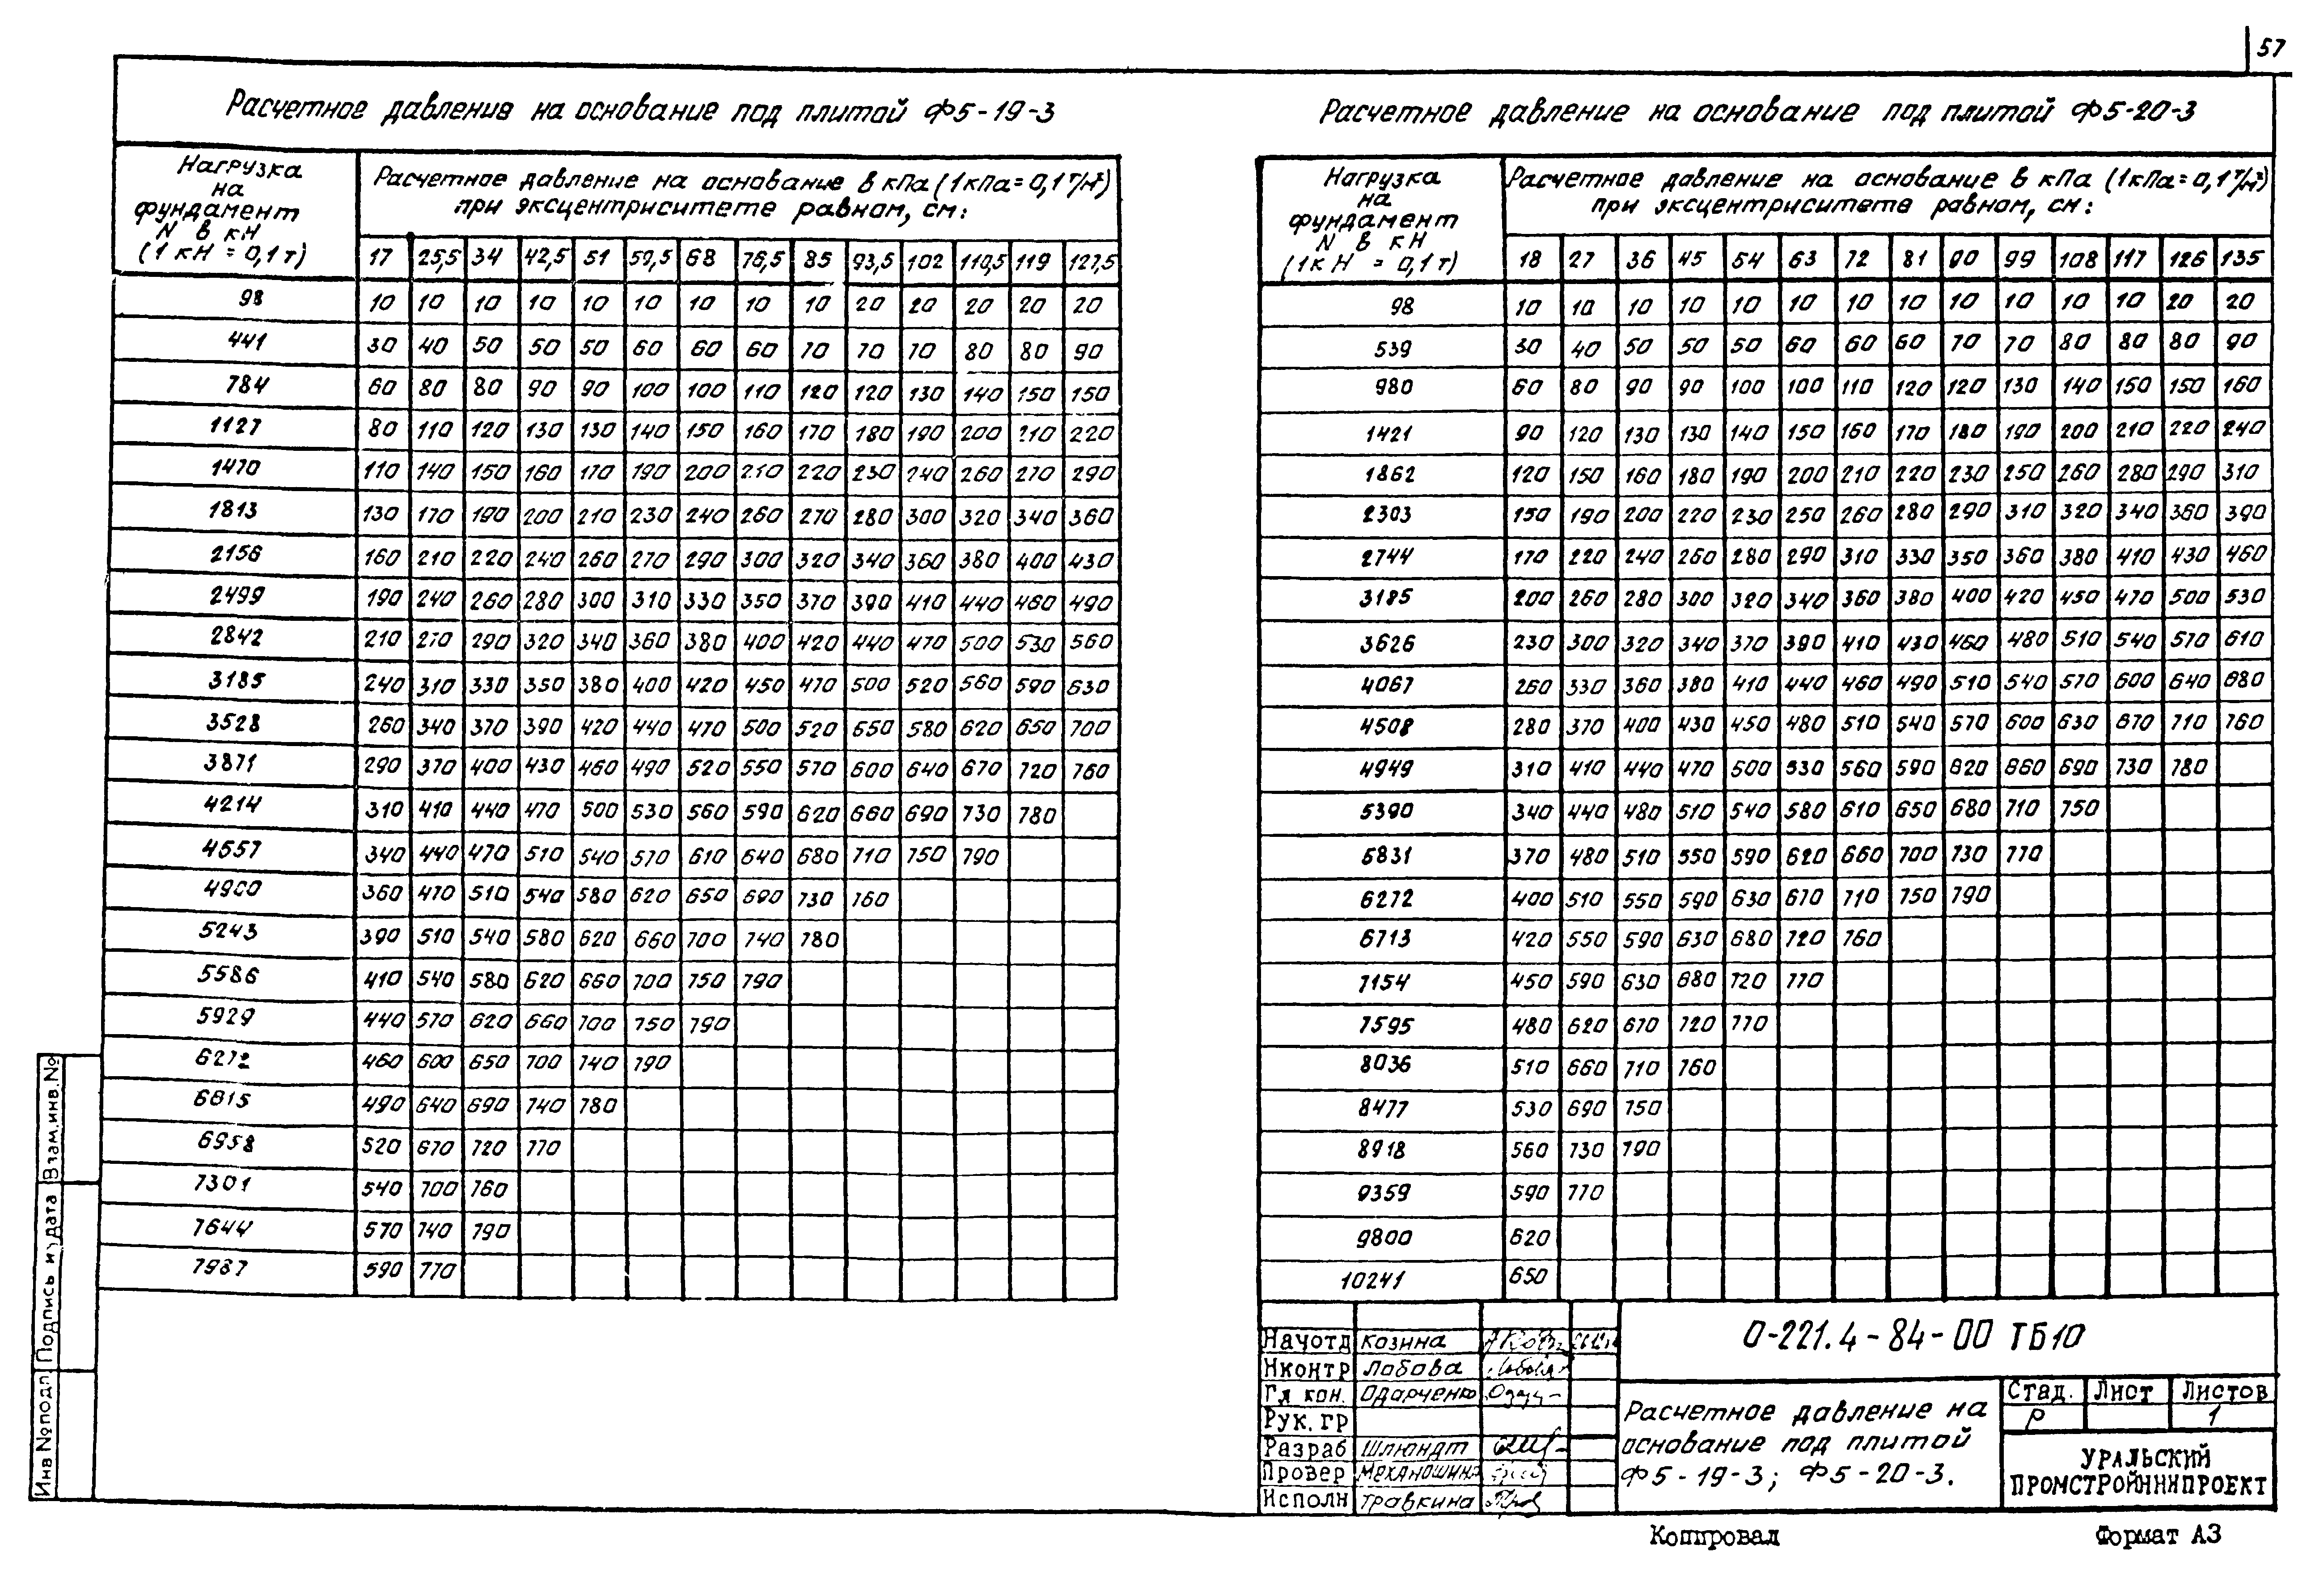 57
Расчетное давления на основание под плитой Ф5-19-3
Нагрузка
на
фундамент
N в кН
(1 кН = 0,1 т)
Расчетное давление на основание в кПа (1кПа = 0,1 т/м²)
при эксцентриситете равном, см:
17 25,5 34 42,5 51 59,5 68 76,5 85 93,5 102 110,5 119 127,5
98 10 10 10 10 10 10 10 10 10 20 20 20 20 20
441 30 40 50 50 50 60 60 60 70 70 70 80 80 90
784 60 80 80 90 90 100 100 110 120 120 130 140 150 150
1127 80 110 120 130 130 140 150 160 170 180 190 200 210 220
1470 110 140 150 160 170 190 200 210 220 230 240 260 270 290
1813 130 170 190 200 210 230 240 260 270 280 300 320 340 360
2156 160 210 220 240 260 270 290 300 320 340 360 380 400 430
2499 190 240 260 280 300 310 330 350 370 390 410 440 460 490
2842 210 270 290 320 340 360 380 400 420 440 470 500 530 560
3185 240 310 330 350 380 400 420 450 470 500 520 560 590 630
3528 260 340 370 390 420 440 470 500 520 550 580 620 650 700
3871 290 370 400 430 460 490 520 550 570 600 640 670 720 760
4214 310 410 440 470 500 530 560 590 620 660 690 730 780
4557 340 440 470 510 540 570 610 640 680 710 750 790
4900 360 470 510 540 580 620 650 690 730 760
5243 390 510 540 580 620 660 700 740 780
5586 410 540 580 620 660 700 750 790
5929 440 570 620 660 700 750 790
6272 460 600 650 700 740 790
6615 490 640 690 740 780
6958 520 670 720 770
7301 540 700 760
7644 570 740 790
7987 590 770
Расчетное давление на основание под плитой Ф5-20-3
Нагрузка
на
фундамент
N в кН
(1кН = 0,1 т)
Расчетное давление на основание в кПа (1кПа = 0,1 т/м²)
при эксцентриситете равном, см:
18 27 36 45 54 63 72 81 90 99 108 117 126 135
98 10 10 10 10 10 10 10 10 10 10 10 10 20 20
539 30 40 50 50 50 60 60 60 70 70 80 80 80 90
980 60 80 90 90 100 100 110 120 120 130 140 150 150 160
1421 90 120 130 130 140 150 160 170 180 190 200 210 220 240
1862 120 150 160 180 190 200 210 220 230 250 260 280 290 310
2303 150 190 200 220 230 250 260 280 290 310 320 340 360 390
2744 170 220 240 260 280 290 310 330 350 360 380 410 430 460
3185 200 260 280 300 320 340 360 380 400 420 450 470 500 530
3626 230 300 320 340 370 390 410 430 460 480 510 540 570 610
4067 260 330 360 380 410 440 460 490 510 540 570 600 640 680
4508 280 370 400 430 450 480 510 540 570 600 630 670 710 760
4949 310 410 440 470 500 530 560 590 620 660 690 730 780
5390 340 440 480 510 540 580 610 650 680 710 750
5831 370 480 510 550 590 620 660 700 730 770
6272 400 510 550 590 630 670 710 750 790
6713 420 550 590 630 680 720 760
7154 450 590 630 680 720 770
7595 480 620 670 720 770
8036 510 660 710 760
8477 530 690 750
8918 560 730 790
9359 590 770
9800 620
10241 650
Начотд Козина
Нконтр Лобова
Гл кон. Одарченко
Рук. гр
Разраб Шлюндт
Провер Механошина
Исполн Травкина
0-221.4-84-00 ТБ10
Расчетное давление на
основание под плитой
Ф5-19-3; Ф5-20-3.
Стад. Лист Листов
Р 1
УРАЛЬСКИЙ
ПРОМСТРОЙНИИПРОЕКТ
Копировал Формат А3
Инв № подл. Подпись и дата Взам.инв.№